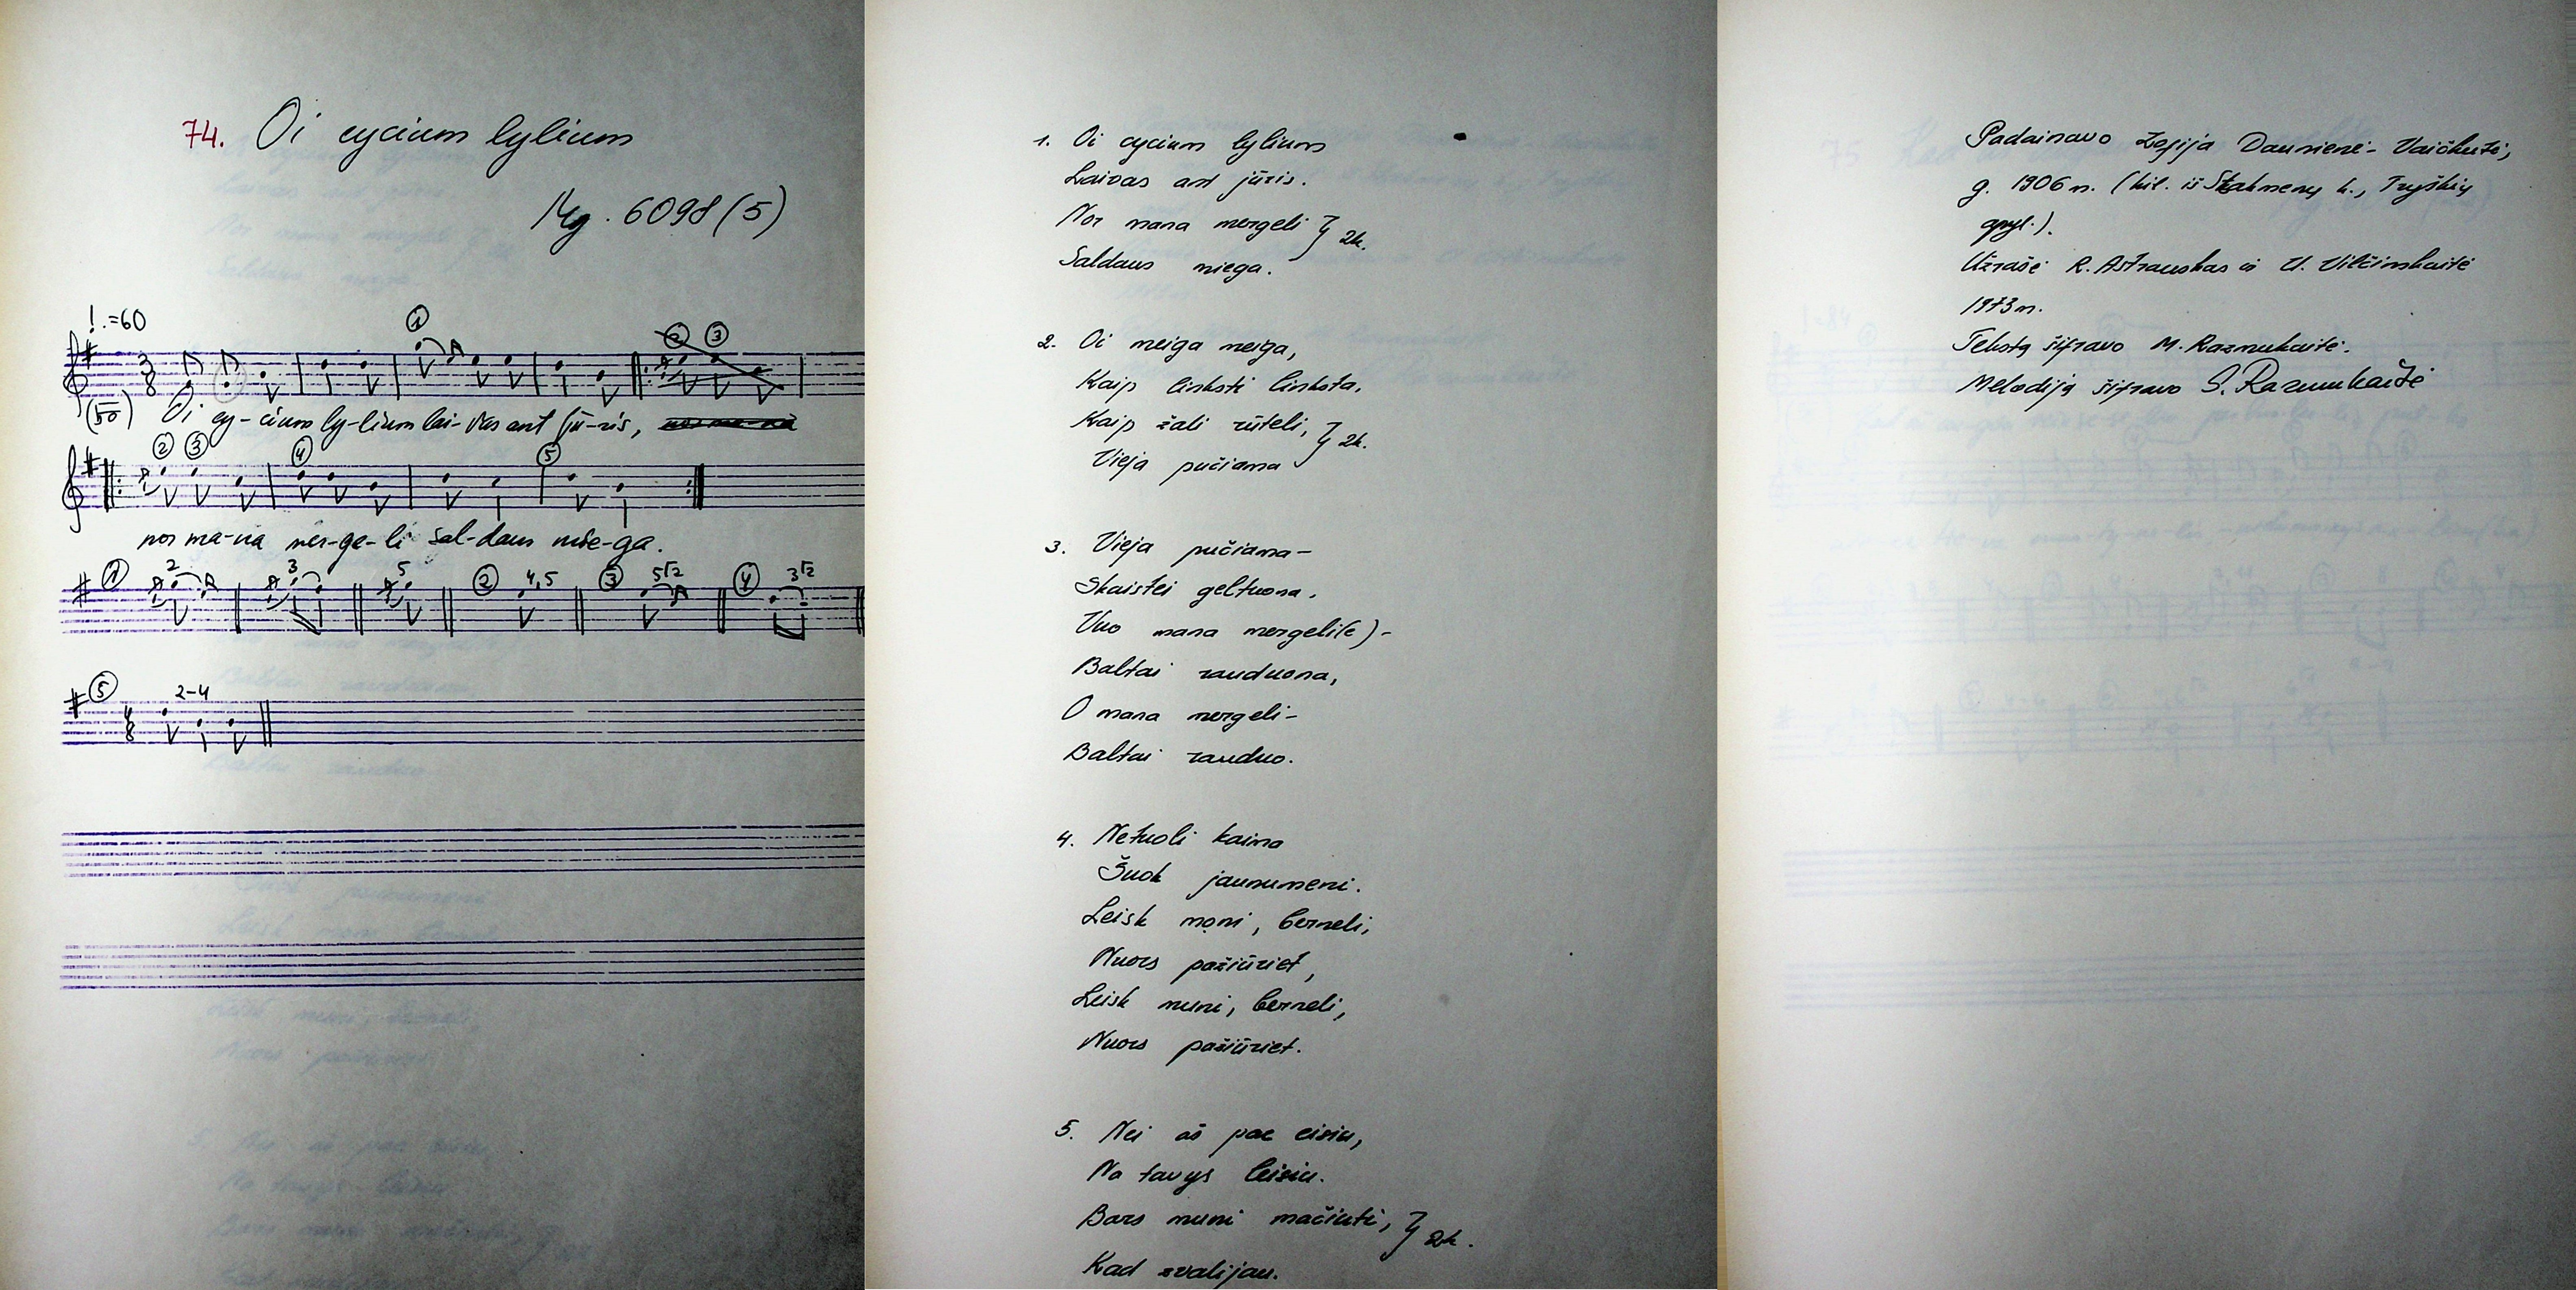 74. Oi cycium lylium
Mg. 6098 (5)
=60
① ② ③
3 8
(50) Oi cy-cium ly-lium lai-vas ant jū-ris,
② ③ ④ ⑤
nor ma-na mer-ge-li sal-daus mie-ga.
① 2 3 5 ② 4,5 ③ 5√2 ④ 3√2
⑤ 2-4
1. Oi cycium lylium
Laivas ant jūris.
Nor mana mergeli } 2k.
Saldaus miega.
2. Oi meiga meiga,
Kaip linksti linksta,
Kaip žali rūteli, } 2k.
Vieja pučiama
3. Vieja pučiama-
Skaistei geltuona,
Vuo mana mergeli(e)-
Baltai rauduona,
O mana mergeli-
Baltai rauduo.
4. Netuoli kaima
Šuok jaunumeni.
Leisk moni, berneli,
Nuors pažiūriet,
Leisk muni, berneli,
Nuors pažiūriet.
5. Nei aš pac eisiu,
Na tavys leisiu.
Bars muni močiuti, } 2k.
Kad zvalijau.
Padainavo Zofija Daunienė-Vaičkutė,
g. 1906 m. (kil. iš Stakmenų k., Tryškių
apyl.).
Užrašė R. Astrauskas ir U. Vilčinskaitė
1973 m.
Tekstą šifravo M. Razmukaitė.
Melodiją šifravo S. Razmukaitė